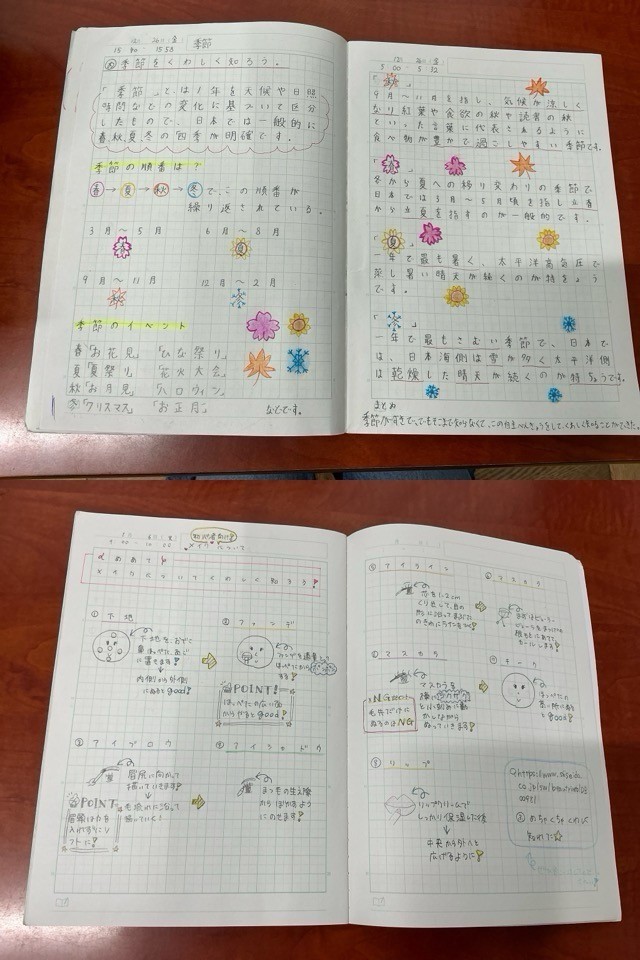 季節
15:58
め 季節をくわしく知ろう。
「季節」とは1年を天候や日照
時間などの変化に基づいて区分
したもので、日本では一般的に
春秋夏冬の四季が明確です。
季節の順番は?
春→夏→秋→冬で、この順番が
繰り返されている。
3月〜5月 6月〜8月
春 夏
9月〜11月 12月〜2月
秋 冬
季節のイベント
春「お花見」「ひな祭り」
夏「夏祭り」「花火大会」
秋「お月見」「ハロウィン」
冬「クリスマス」「お正月」などです。
5:00 5:32
「秋」
9月〜11月を指し、気候が涼しく
なり紅葉や食欲の秋や読書の秋
といった言葉に代表されるように
食べ物が豊かで過ごしやすい季節です。
「春」
冬から夏への移り変わりの季節で
日本では3月〜5月頃を指し立春
から立夏を指すのが一般的です。
「夏」
一年で最も暑く、太平洋高気圧で
蒸し暑い晴天が続くのが特ちょう
です。
「冬」
一年で最もさむい季節で、日本で
は、日本海側は雪が多く太平洋側
は乾燥した晴天が続くのが特ちょうです。
まとめ
季節が好きで、でもそこまで知らなくて、この自主べんきょうをして、くわしく知ることができた。
初心者向け
メイクについて
めあて
メイクについてくわしく知ろう!
① 下地
下地を、おでこ
鼻、ほっぺた、あご
に置きます!
内側から外側
にぬるとgood!
② ファンデ
ほっぺたから
POINT!
ほっぺたの広い面
からやるとgood!
③ アイブロウ
眉尻に向かって
描いていきます!
毛流れに沿って
描いていく!
POINT
眉頭は力を
入れずにソ
フトに!
④ アイシャドウ
まつ毛の生え際
からぼかるよう
にのせます!
⑤ アイライン
⑥ マスカラ
マスカラ
マスカラを
横に
動か
しながら
ぬっていきます!
NG
毛先だけに
ぬるのはNG
チーク
ほっぺたの
高い所にぬる
とgood!
リップ
リップクリームで
しっかり保湿した後
中央から外へと
広げるように!
めちゃくちゃくわしく
知れた☆